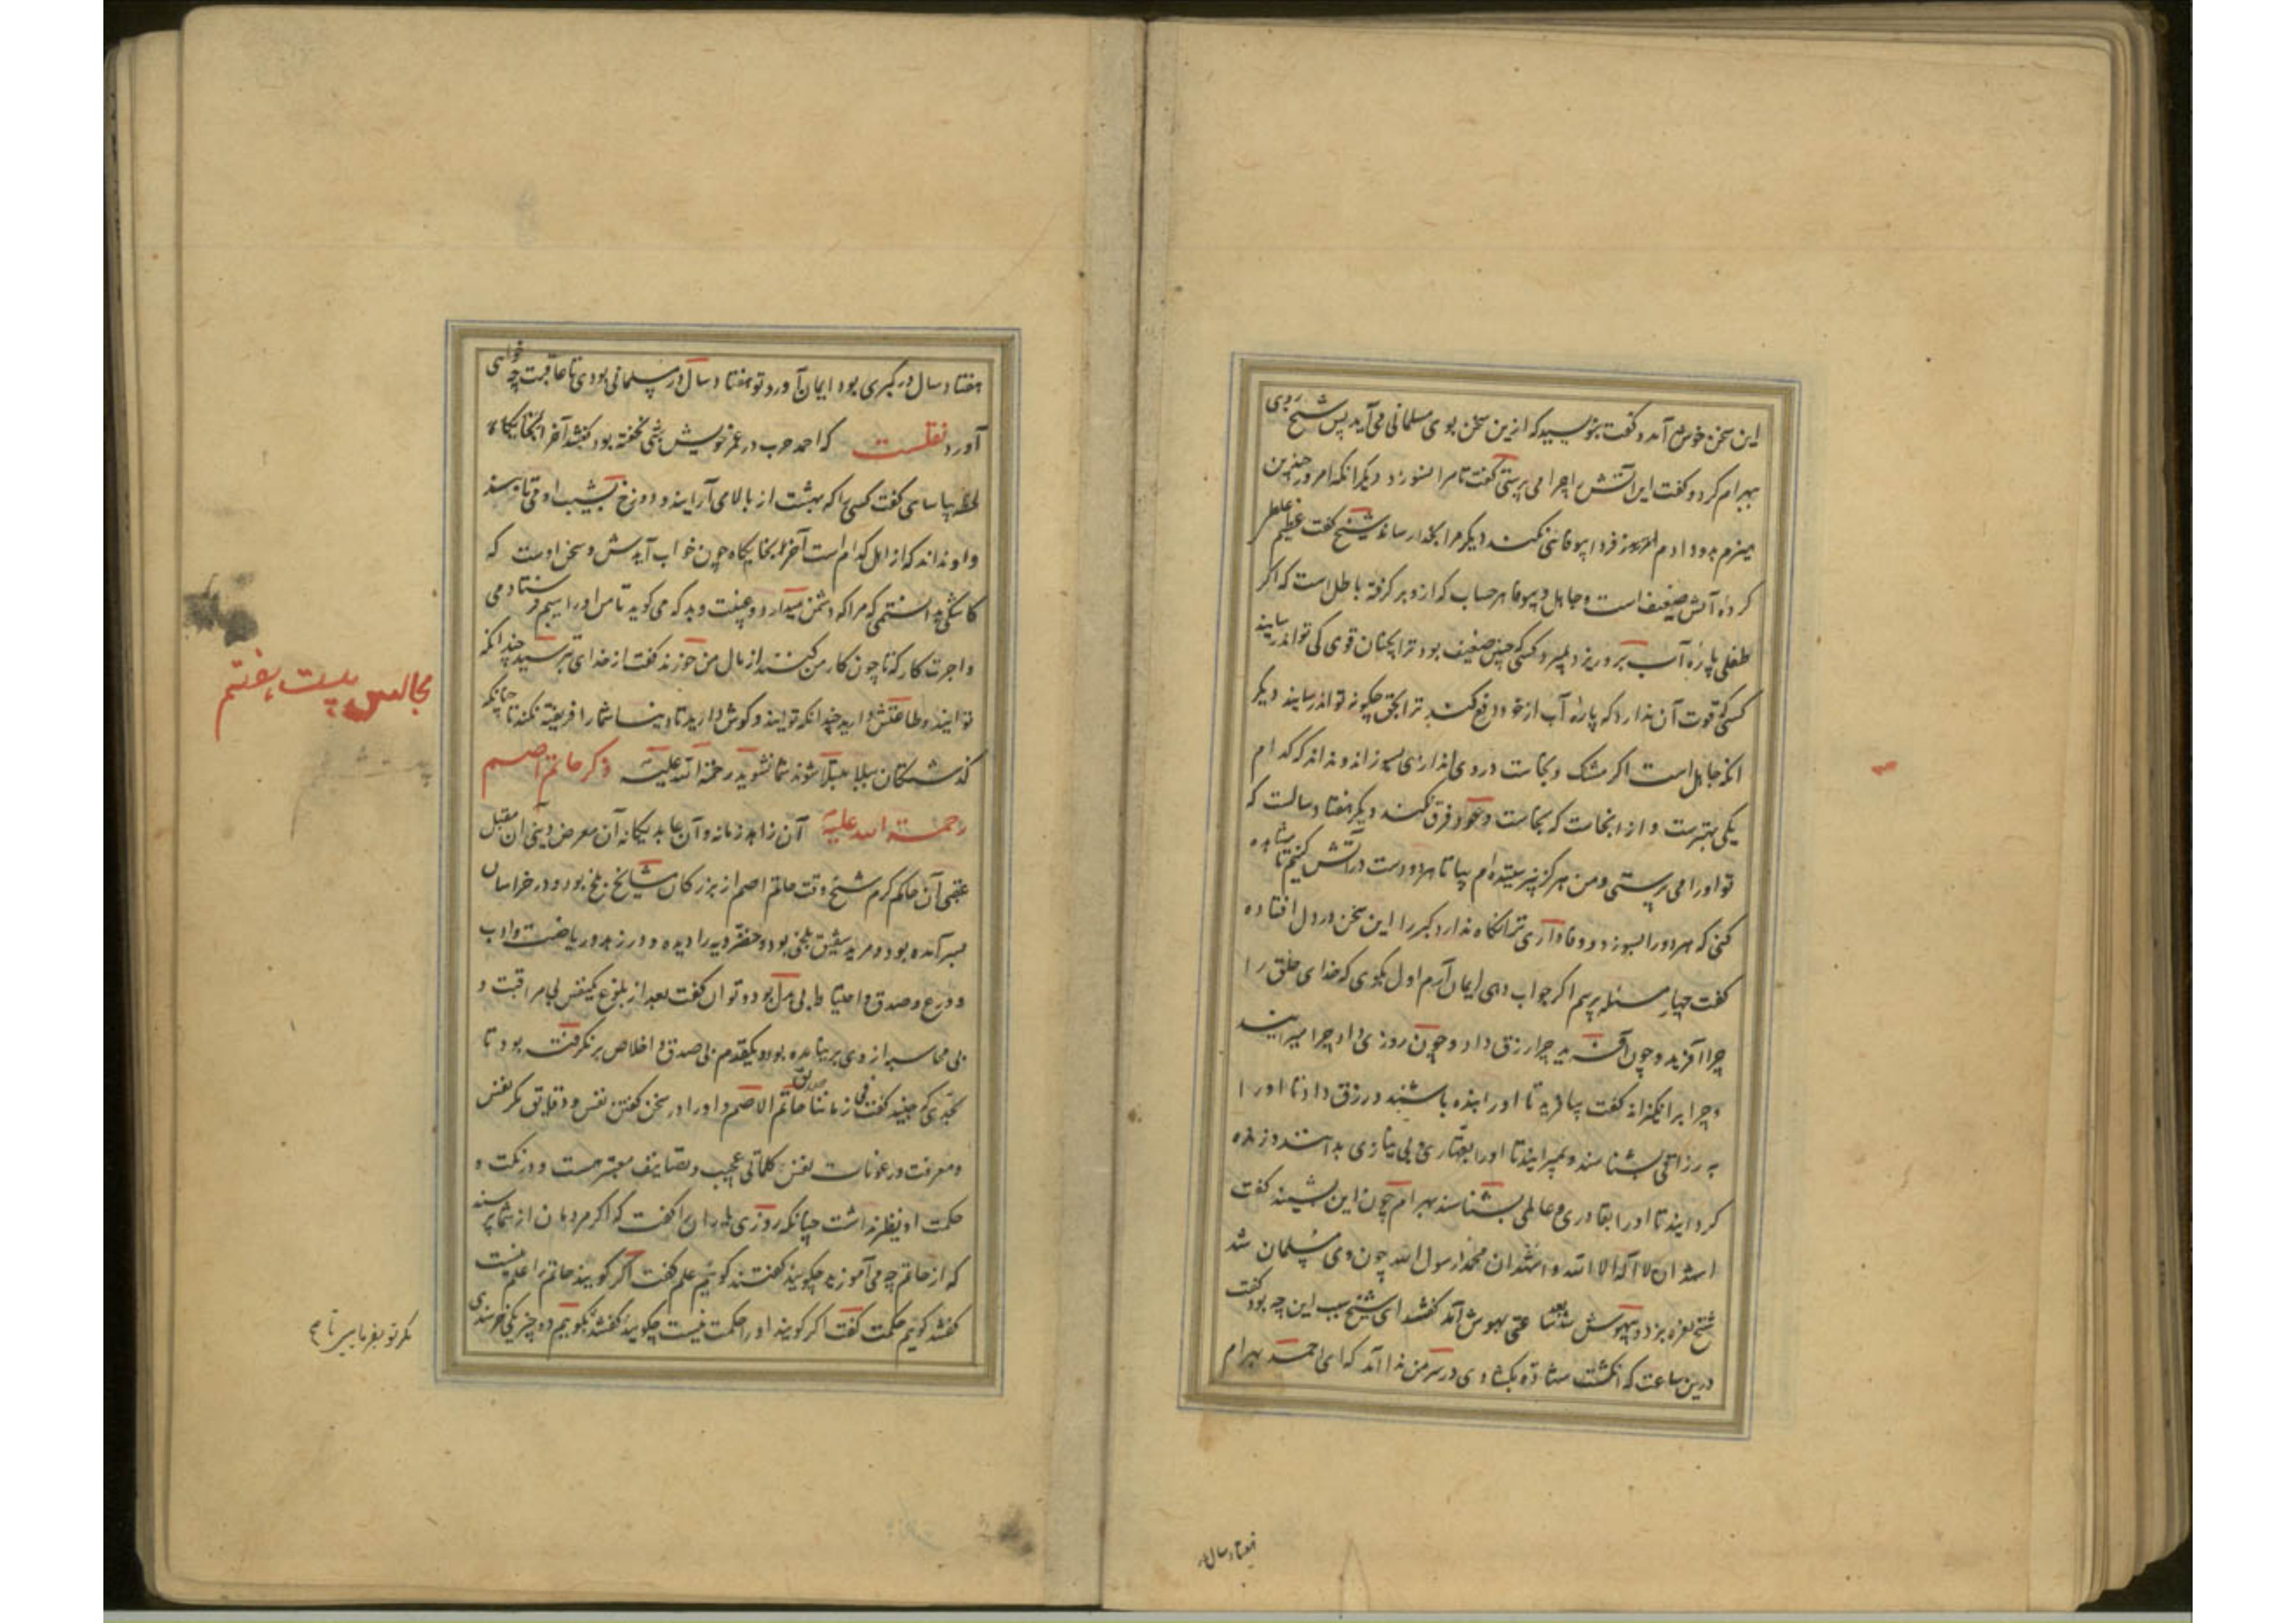 این سخن خوش آمد و گفت بنویسید که ازین سخن بوی مسلمانی می آید پس شیخ روی
ببهرام کرد و گفت این آتش را چرا می پرستی گفت تا مرا نسوزد دیگر انکه امروز چندین
هیزم بدو دادم فردا بیوفائی نکند دیگر مرا بخدا رساند شیخ گفت عظیم غلط
کرده آتش ضعیف است و جاهل و بیوفا هر حساب که ازو بر گرفته باطل است که اگر
طفلی پاره آب برو ریزد بمیرد کسی که چنین ضعیف بود ترا بچنان قوی کی تواند رسانید
کسی که قوت آن ندارد که پاره آب از خود دفع کند ترا بحق چگونه تواند رسانید دیگر
انکه جاهل است اگر مشک و نجاست دروی اندازی بسوزاند و نداند که کدام
یکی بهترست و از انجاست که نجاست و عود فرق نکند دیگر هفتاد سالست که
تو اورا می پرستی و من هرگز نپرستیده ام بیا تا هردو دست در آتش کنیم تا مشاهده
کنی که هردو را بسوزد و وفاداری ترا نگاه ندارد گبر را این سخن در دل افتاده
گفت چهار مسئله پرسم اگر جواب دهی ایمان آرم اول بگوی که خدای خلق را
چرا آفرید و چون آفرید چرا رزق داد و چون روزی داد چرا میرانید
و چرا برانگیزاند گفت بیافرید تا اورا بنده باشند و رزق داد تا اورا
به رزاقی بشناسند و بمیرانید تا اورا بقهاری و بی نیازی بدانند و زنده
گردانید تا اورا بقادری و عالمی بشناسند بهرام چون این بشنید گفت
اشهد ان لا اله الا الله و اشهد ان محمد رسول الله چون وی مسلمان شد
شیخ نعره بزد و بیهوش شد بعد ساعتی بهوش آمد گفتند ای شیخ سبب این چه بود گفت
درین ساعت که انگشت شهاده بگشادی در سر من ندا آمد که ای احمد بهرام
هفتاد سال در
هفتاد سال در گبری بود ایمان آورد تو هفتاد سال در مسلمانی بودی تا عاقبت چه خواهی
آورد نقلست که احمد حرب در عمر خویش شبی نخفته بود گفتند آخر
لحظه بیاسای گفت کسی را که بهشت از بالا می آرایند و دوزخ بشیب او می تابند
و او نداند که از اهل کدام است آخر چون خواب آیدش و سخن اوست که
کاشکی بدانستمی که مرا که دشمن میدارد و غیبت و بد که می گوید تا من اورا سیم فرستادمی
و اجرت کار که تا چون کار من کنند از مال من خورند گفت از خدای بترسید چندانکه
توانید و طاعتش دارید چندانکه توانید و گوش دارید تا دنیا شما را فریفته نکند تا چنانکه
گذشتگان ببلا مبتلا شوند شما نشوید رحمة الله علیه ذکر حاتم اصم
رحمة الله علیه آن زاهد زمانه و آن عابد یگانه آن معرض دینی آن مقبل
عقبی آن حاکم کرم شیخ وقت حاتم اصم از بزرگان مشایخ بلخ بود و در خراسان
بسر آمده بود و مرید شقیق بلخی بود و خضرویه را دیده و در زهد و ریاضت و ادب
و ورع و صدق و احتیاط بی بدل بود و توان گفت بعد از بلوغ یکنفس بی مراقبت و
بی محاسبه از وی برنیامده بود و یکقدم بی صدق و اخلاص برنگرفت بود تا
بحدی که جنید گفت صدیق فی زماننا حاتم الاصم و اورا در سخن گفتن نفس و دقایق مکر نفس
و معرفت و رعونات نفس کلماتی عجیب و تصانیف معتبر هست و در نکت و
حکمت او نظیر نداشت چنانکه روزی یاران را گفت که اگر مردمان از شما پرسند
که از حاتم چه می آموزید چگویید گفتند گوئیم علم گفت اگر گویند حاتم را علم نیست
گفتند گوئیم حکمت گفت اگر گویند اورا حکمت نیست چگویید گفتند بگوییم دو چیز یکی خرسندی
مجالس بیست هفتم